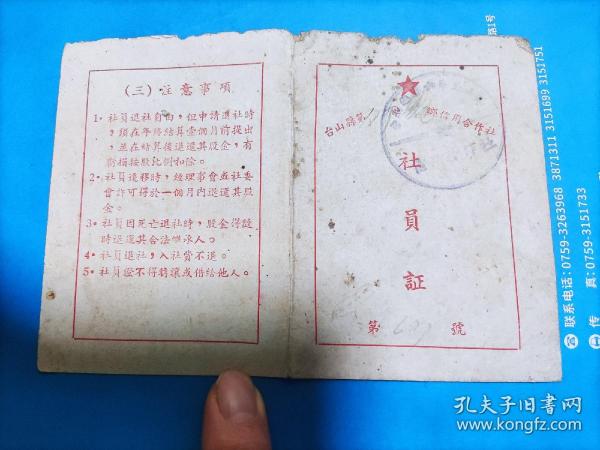 (三) 注意事項
1·社員退社自由，但申請退社時
，須在年終結算壹個月前提出
，並在結算後退還其股金，有
虧損按股比例扣除。
2·社員遷移時，經理事會或社委
會許可得於一個月內退還其股
金。
3·社員因死亡退社時，股金得隨
時退還其合法繼承人。
4·社員退社，入社費不退。
5·社員證不得轉讓或借給他人。
台山縣第 鄉信用合作社
社
員
証
第 號
联系电话：0759-3263968 3871311 3151699 3151751
传 真：0759-3151733
路1号
孔夫子旧书网
www.kongfz.com